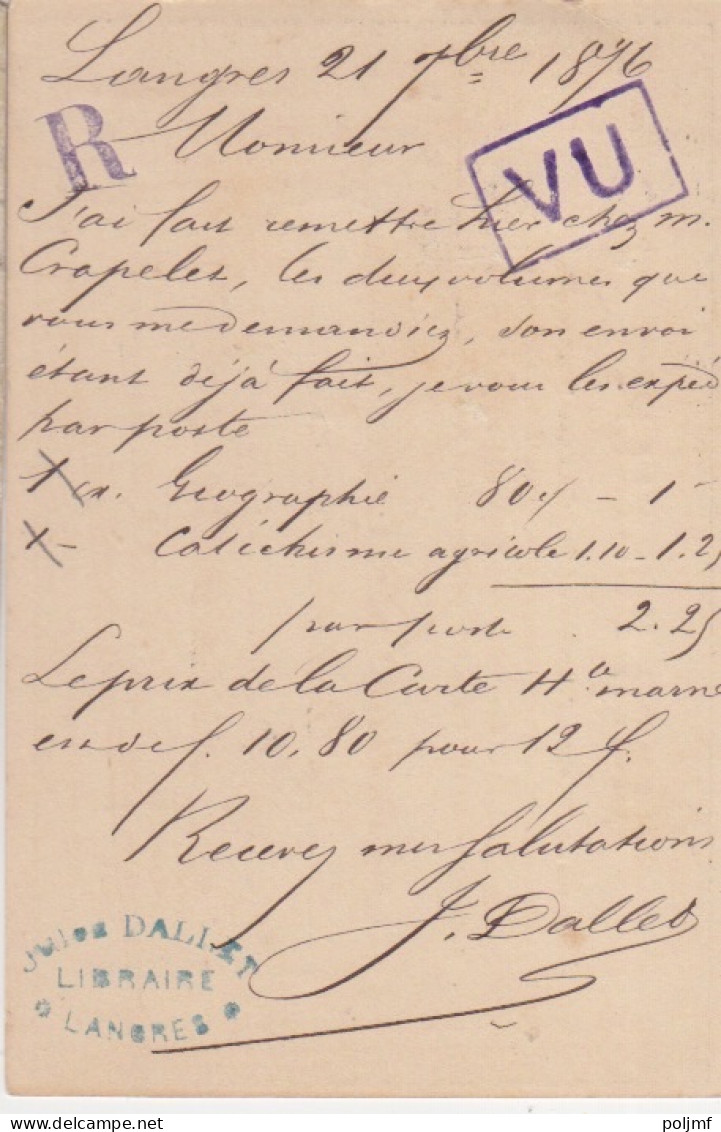 Langres 21 7bre 1876
R
Monsieur
VU
J'ai fait remettre hier chez m.
Crapelet, les deux volumes que
vous me demandiez, son envoi
étant déjà fait, je vous les expéd
par poste
1 ex. Géographie 80 c/ - 1 -
1 - Catéchisme agricole 1.10 - 1.25
par poste . 2.25
Le prix de la Carte Hte marne
est de f. 10,80 pour 12 f.
Recevez mes salutations
J. Dallet
Jules DALLET
LIBRAIRE
* LANGRES *
delcampe.net
poljmf